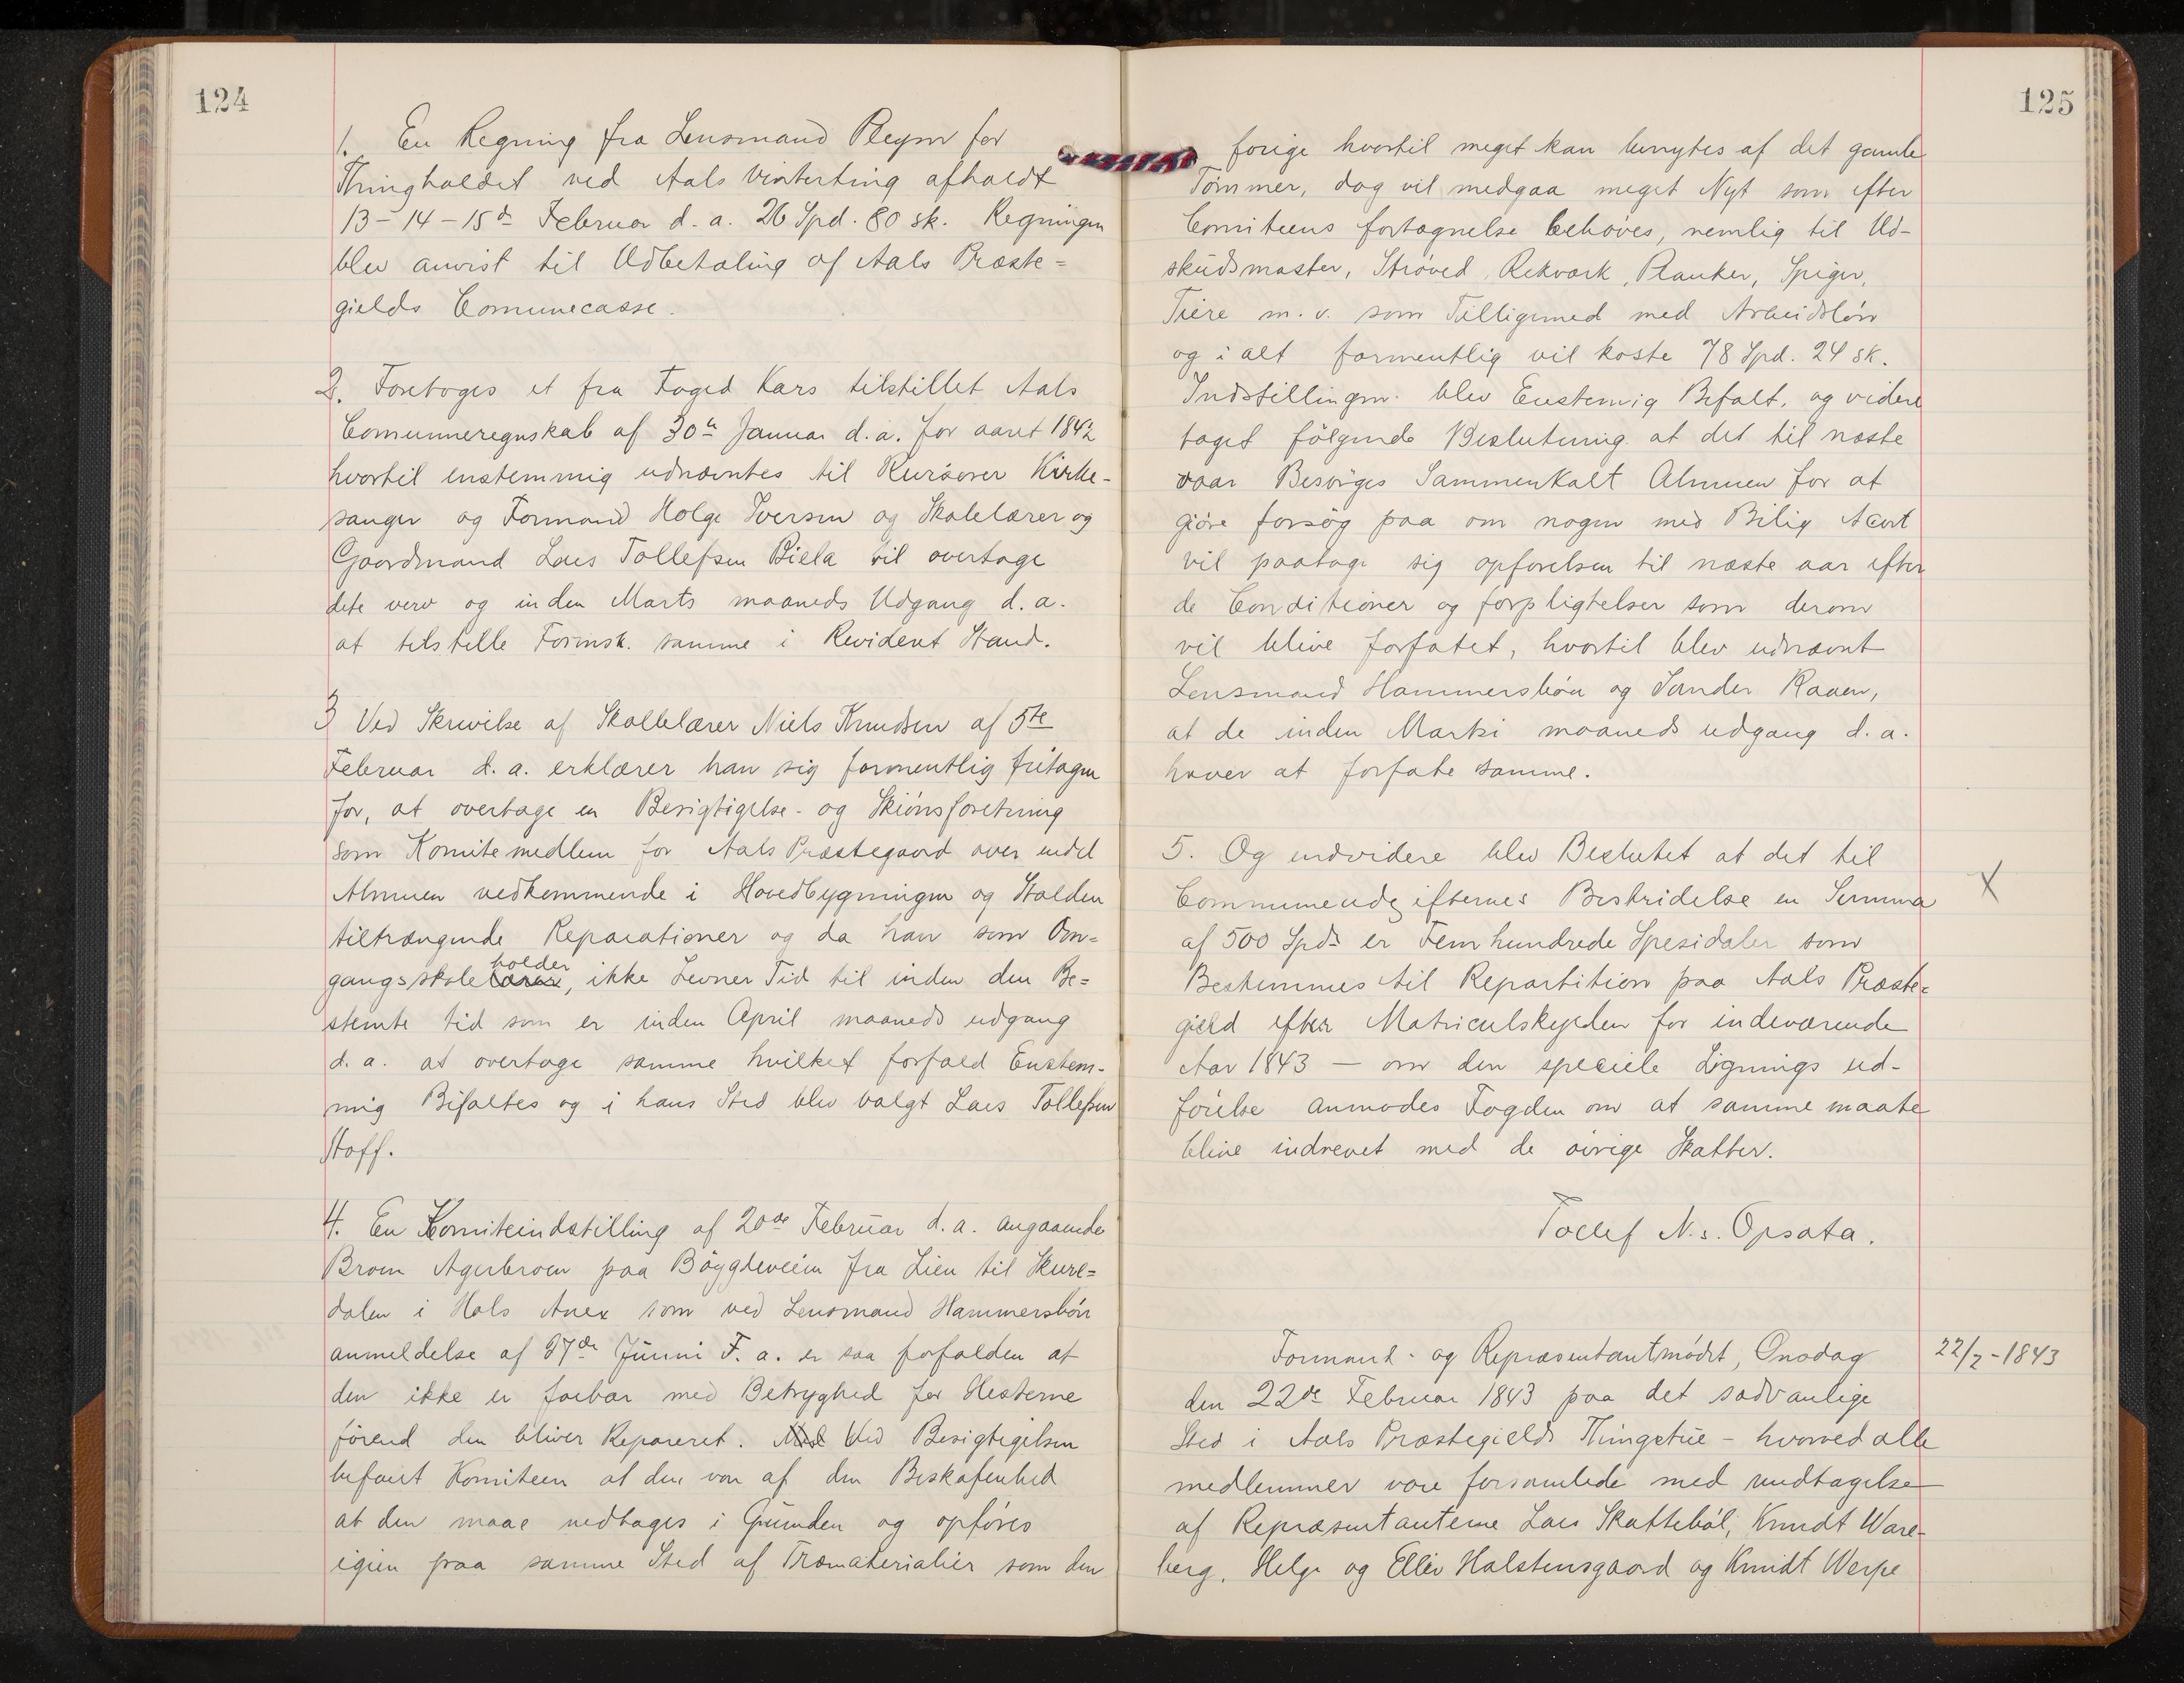 124
1. En Regning fra Lensmand Pleym for
Thingholdet ved Aals Vinterting afholdt
13-14-15de Februar d. a. 26 Spd. 80 sk. Regningen
blev anvist til Udbetaling af Aals Præste=
gields Comunecasse.
2. Foretoges et fra Foged Kars tilstillet Aals
Comunneregnskab af 30te Januar d. a. for aaret 1842
hvortil enstemmig udnævntes til Revisorer Kirke-
sanger og Formand Holge Iversen og Skolelærer og
Gaardmand Lars Tollefsen Biela vil overtage
dete verv og inden Marts maaneds Udgang d. a.
at tilstille Formsk. samme i Revideret Stand.
3 Ved Skrivelse af Skollelærer Niels Knudsen af 5te
Februar d. a. erklærer han sig formentlig fritagen
for, at overtage en Besigtigelse- og Skiønsforetning
som Komitemedlem for Aals Præstegaard over endel
Almuen vedkommende i Hovedbygningen og Stalden
tiltrængende Reparationer og da han som Om=
gangsskoleholder, ikke Levner Tid til inden den Be=
stemte tid som er inden April maaneds udgang
d. a. at overtage samme hvilket forfald Enstem-
mig Bifaltes og i hans Sted blev valgt Lars Tollefsen
Stoff.
4. En Komiteindstilling af 20de Februar d. a. angaaende
Broen Agerbroen paa Bøygdeveien fra Lien til Skure=
dalen i Hols Anex som ved Lensmand Hammersbøn
anmeldelse af 27de Junni F. a. er saa forfalden at
den ikke er farbar med Betryghed for Hesterne
førend den bliver Repareret. Ved Besigtigelsen
befant Komiteen at den var af den Beskafenhed
at den maae nedtages i Grunden og opføres
igien paa samme Sted af Træmaterialier som den
125
forige hvortil meget kan benytes af det gamle
Tømmer, dog vil medgaa meget Nyt som efter
Comiteens fortegnelse behøves, nemlig til Ud-
skudsmaster, Strøved, Rekværk, Planker, Spiger,
Tiere m. v. som Tilligemed med Arbeidsløn
og i alt formentlig vil koste 78 Spd. 24 sk.
Indstillingen blev Enstemig Bifalt, og videre
taget følgende Beslutning at det til næste
vaar Besørges Sammenkalt Almuen for at
giøre forsøg paa om nogen med Bilig Acort
vil paatage sig opførelsen til næste aar efter
de Conditioner og forpligtelser som derom
vil blive forfatet, hvortil blev udnævnt
Lensmand Hammersbøn og Sander Raaen,
at de inden Martsi maaneds udgang d. a.
haver at forfate samme.
5. Og endvidere blev Beslutet at det til
Communeudgifternes Bestridelse en Summa
af 500 Spdr er Fem hundrede Spesidaler som
Bestemmes til Repartition paa Aals Præste=
gield efter Matriculskylden for indeværende
Aar 1843 — om den speciele Lignings ud-
førelse anmodes Fogden om at samme maate
blive indrevet med de øvrige Skatter.
X
Tollef N.s. Opsata.
Formand- og Repræsentantmødet, Onsdag
22/2-1843
den 22de Februar 1843 paa det sædvanlige
Sted i Aals Præstegields Thingstue - hvorved alle
medlemmer vare forsamlede med undtagelse
af Repræsentanterne Lars Skattebøl, Knudt Ware-
berg, Helge og Ellev Halstensgaard og Knudt Werpe